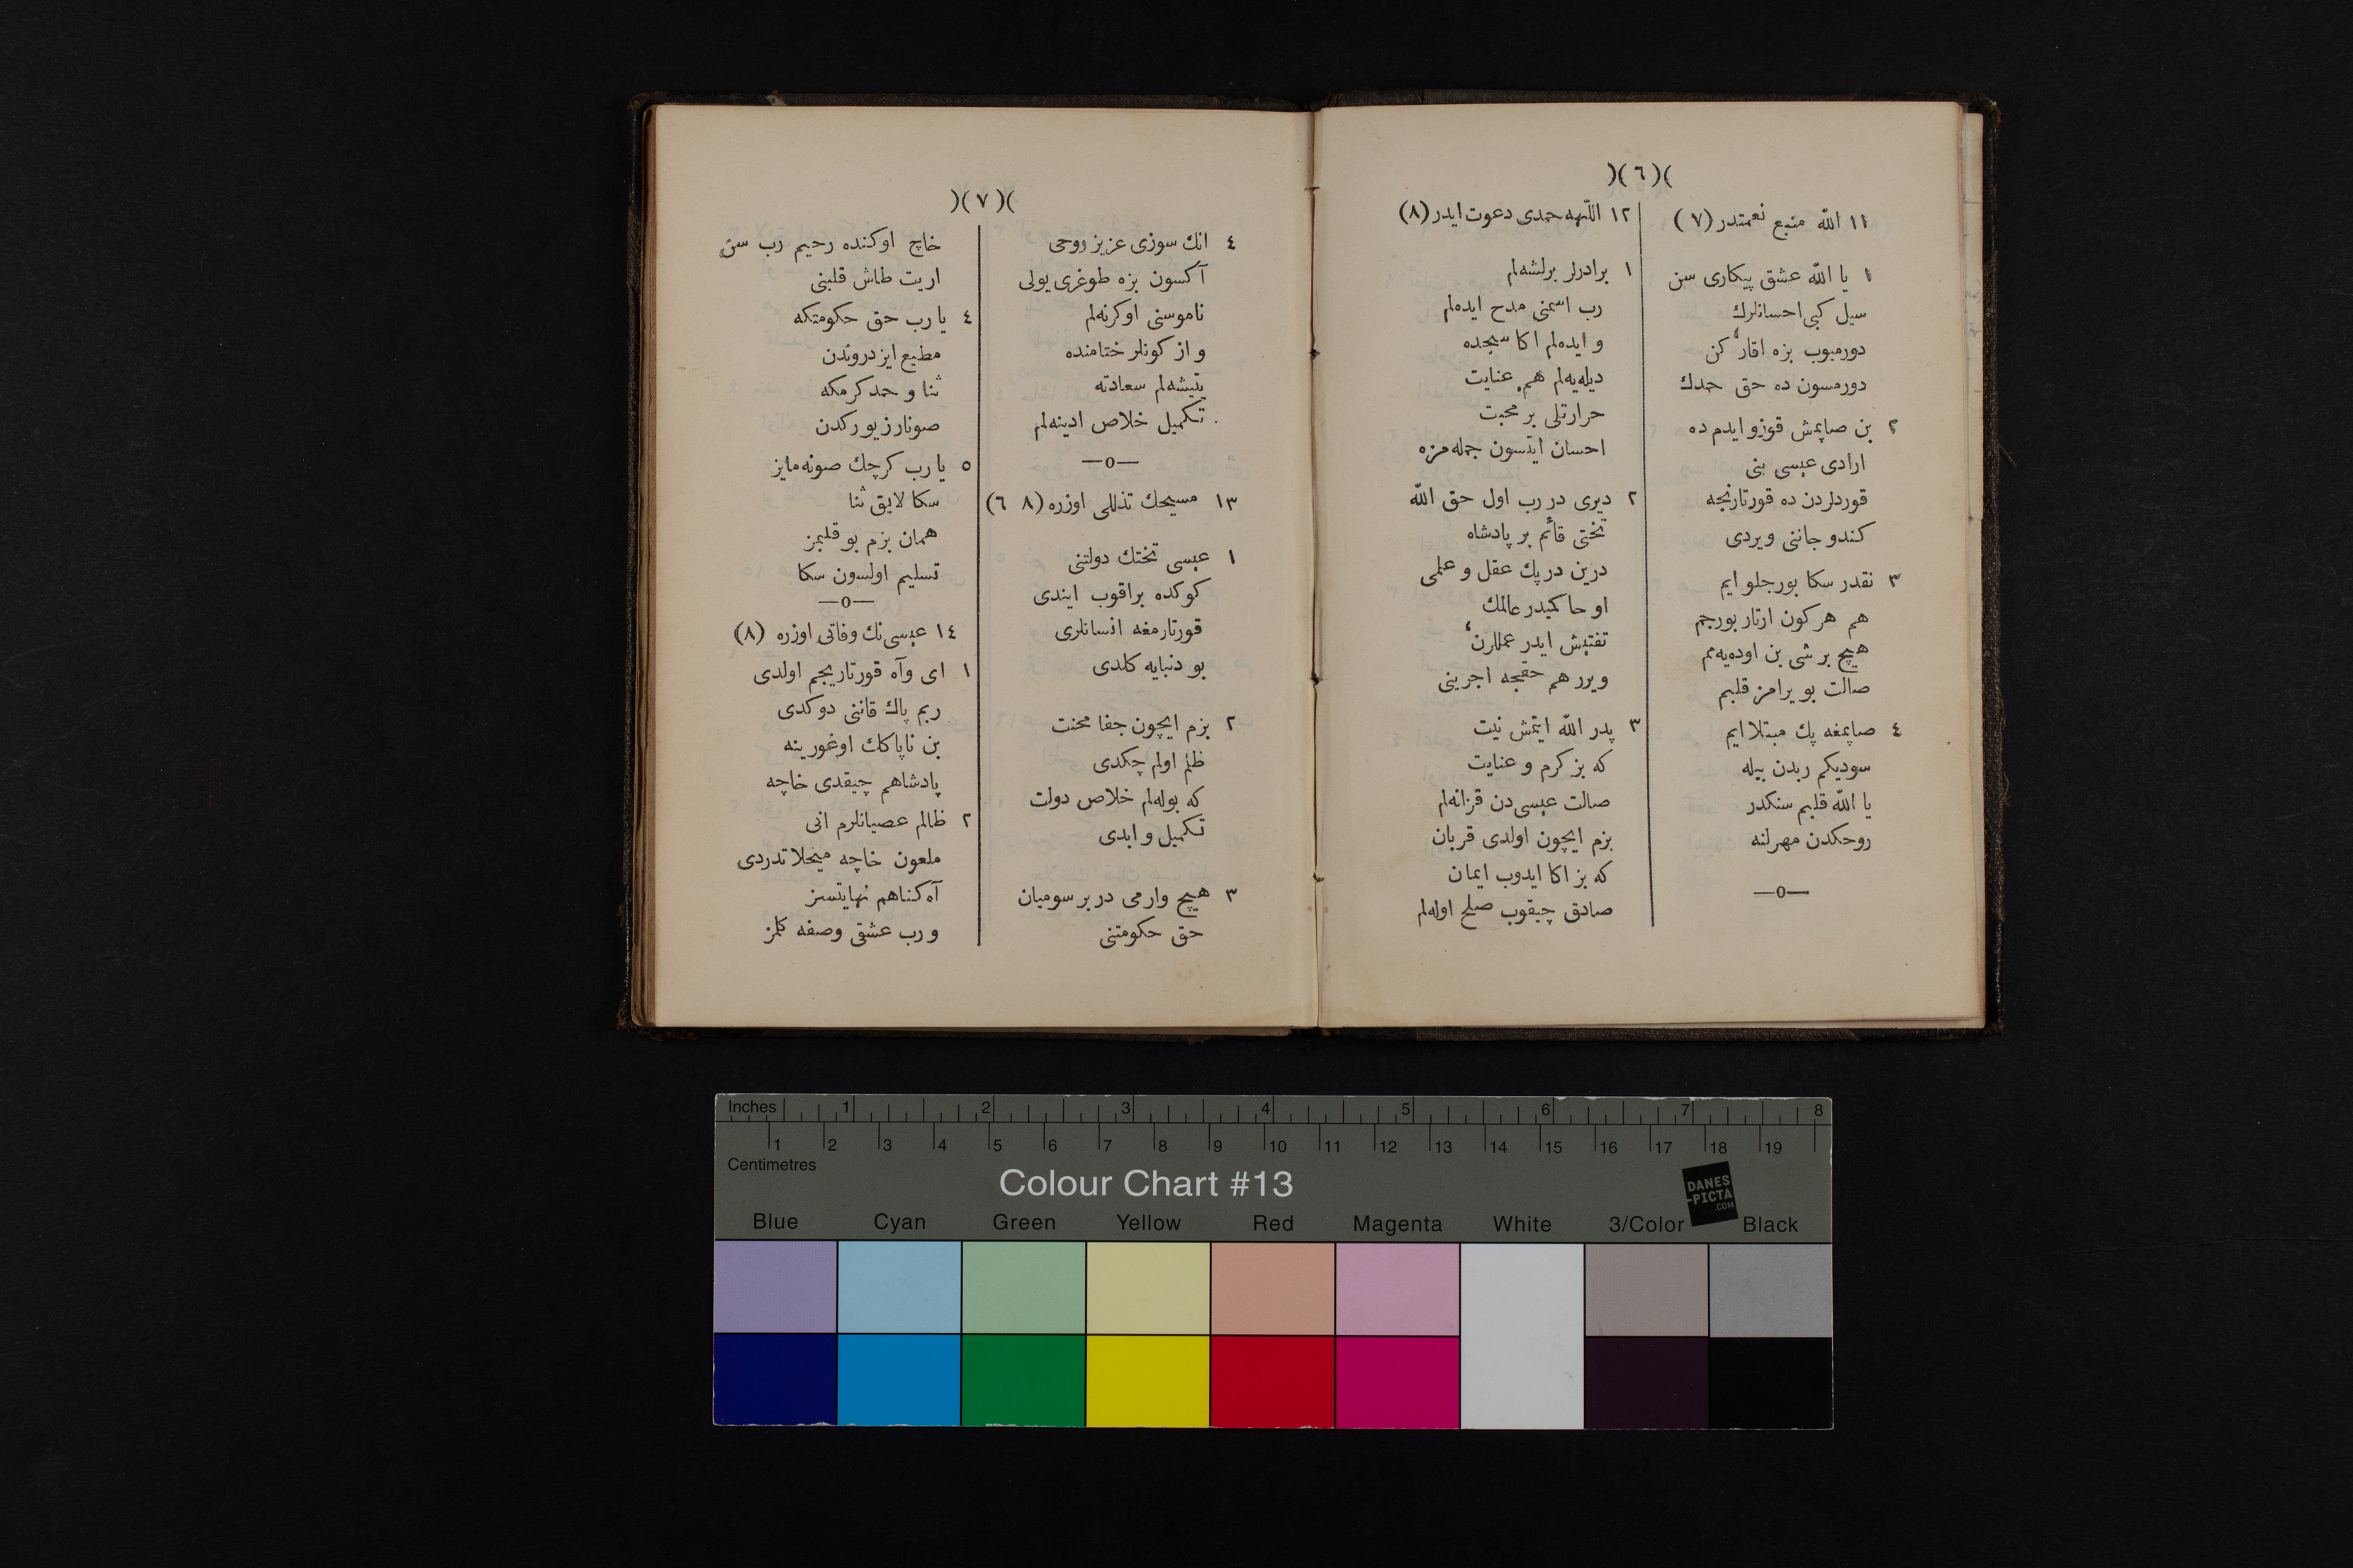 )(٦)(
١١ الله منبع نعمتدر (٧)
١ يا الله عشق پيكارى سن
سيل كبى احسانلرك
دورميوب بزه اقار كن
دورمسون ده حق حمدك
٢ بن صاپمش قوزو ايدم ده
ارادى عيسى بنى
قوردلردن ده قورتارنجه
كندو جاننى ويردى
٣ نقدر سكا بورجلو ايم
هم هر كون ارتار بورجم
هيچ بر شى بن اوده‌يه‌مم
صالت بو يرامز قلبم
٤ صاپمغه پك مبتلا ايم
سوديكم ربدن بيله
يا الله قلبم سنكدر
روحكدن مهرلنه
—o—
١٢ اللّهه حمدى دعوت ايدر (٨)
١ برادرلر برلشه‌لم
رب اسمنى مدح ايده‌لم
و ايده‌لم اكا سجده
ديله‌يه‌لم هم عنايت
حرارتلى بر محبت
احسان ايتسون جمله‌مزه
٢ ديرى در رب اول حق الله
تختى قائم بر پادشاه
درين در پك عقل و علمى
او حاكميدر عالمك
تفتيش ايدر عمللرن
ويرر هم حقجه اجرينى
٣ پدر الله ايتمش نيت
كه بز كرم و عنايت
صالت عيسى‌دن قزانه‌لم
بزم ايچون اولدى قربان
كه بز اكا ايدوب ايمان
صادق چيقوب صلح اوله‌لم
)(٧)(
٤ انك سوزى عزيز روحى
آكسون بزه طوغرى يولى
ناموسنى اوكرنه‌لم
و از كونلر ختامنده
يتيشه‌لم سعادته
تكميل خلاص ادينه‌لم
—o—
١٣ مسيحك تذللى اوزره (٨ ٦)
١ عيسى تختك دولتنى
كوكده براقوب ايندى
قورتارمغه انسانلرى
بو دنيايه كلدى
٢ بزم ايچون جفا محنت
ظلم اولم چكدى
كه بوله‌لم خلاص دولت
تكميل و ابدى
٣ هيچ وارمى در بر سوميان
حق حكومتنى
خاچ اوكنده رحيم رب سن
اريت طاش قلبنى
٤ يا رب حق حكومتكه
مطيع ايز دروندن
ثنا و حمد كرمكه
صونارز يوركدن
٥ يا رب كرچك صونه‌مايز
سكا لايق ثنا
همان بزم بو قلبمز
تسليم اولسون سكا
—o—
١٤ عيسى‌نك وفاتى اوزره (٨)
١ اى وآه قورتاريجم اولدى
ربم پاك قاننى دوكدى
بن ناپاكك اوغورينه
پادشاهم چيقدى خاچه
٢ ظالم عصيانلرم انى
ملعون خاچه ميخلاتدردى
آه كناهم نهايتسز
و رب عشقى وصفه كلمز
Inches 1 2 3 4 5 6 7 8
1 2 3 4 5 6 7 8 9 10 11 12 13 14 15 16 17 18 19
Centimetres
Colour Chart #13
DANES
-PICTA
.COM
Blue Cyan Green Yellow Red Magenta White 3/Color Black